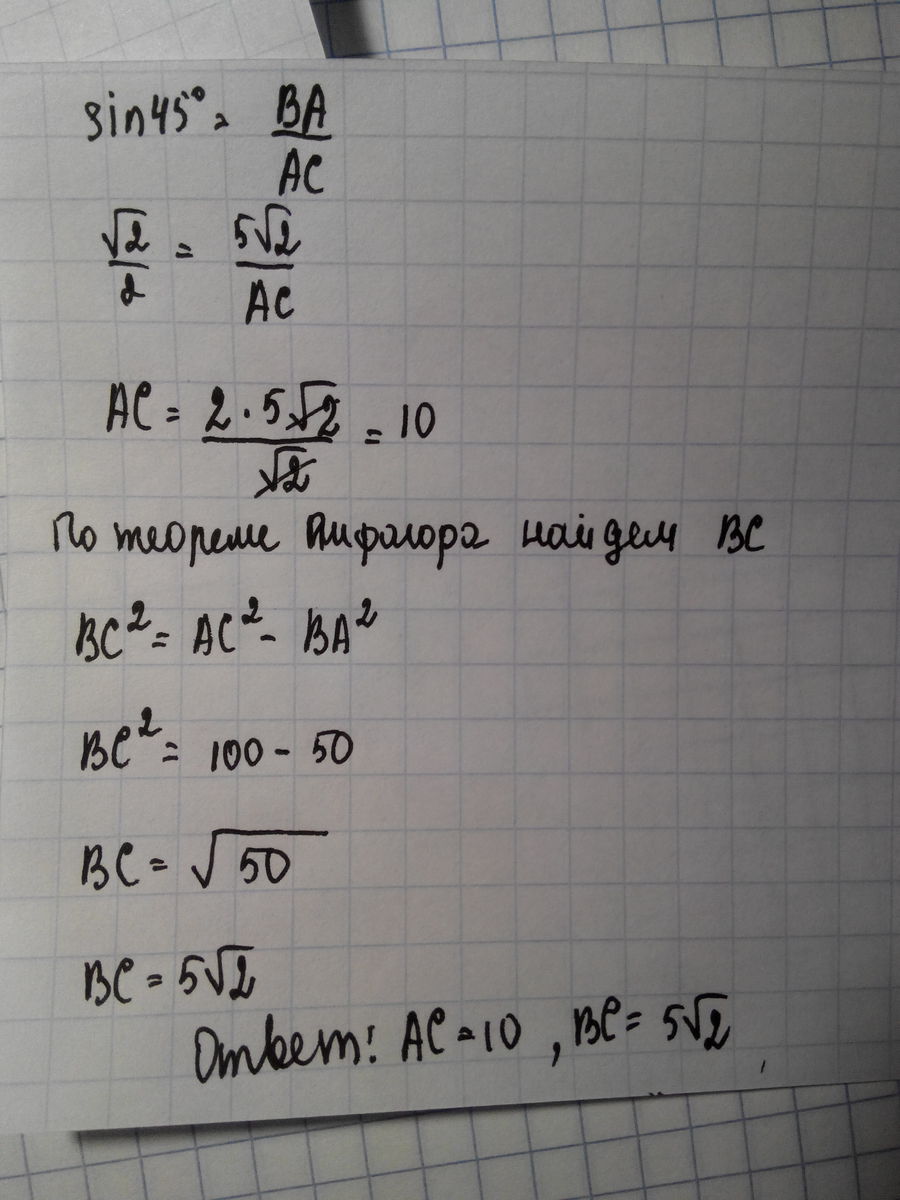 sin45° = BA/AC
√2/2 = 5√2/AC
AC = 2·5√2/√2 = 10
По теореме Пифагора найдем BC
BC² = AC² - BA²
BC² = 100 - 50
BC = √50
BC = 5√2
Ответ: AC = 10, BC = 5√2